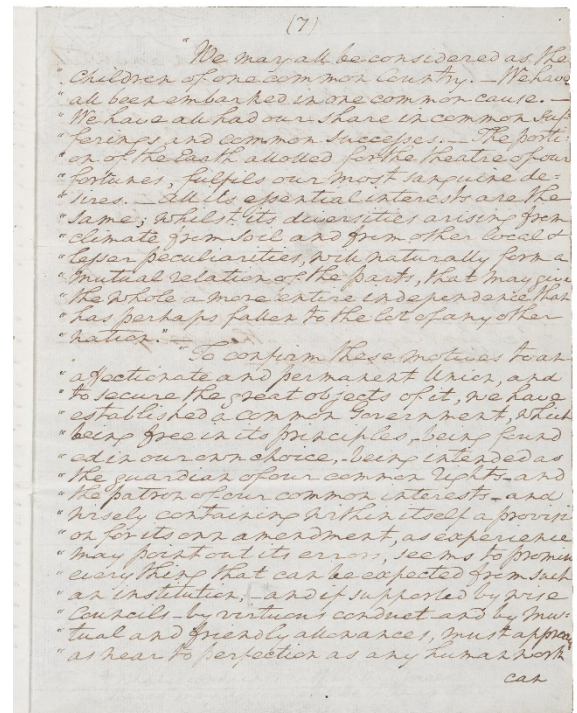 (7)
"We may all be considered as the
" Children of one common Country. — We have
" all been embarked in one common cause. —
" We have all had our share in common suf-
" ferings and common successes. — The porti-
" on of the Earth allotted for the theatre of our
" fortunes, fulfils our most sanguine de-
" sires. — All its essential interests are the
" same; whilst its diversities arising from
" climate from soil and from other local &
" lesser peculiarities, will naturally form a
" mutual relation of the parts, that may give
" the whole a more entire independence than
" has perhaps fallen to the lot of any other
" nation." —
" To confirm these motives to an
" affectionate and permanent Union, and
" to secure the great objects of it, we have
" established a common Government, which
" being free in its principles, being found
" ed in our own choice, being intended as
" the guardian of our common rights – and
" the patron of our common interests – and
" wisely containing within itself a provisi
" on for its own amendment, as experience
" may point out its errors, seems to promise
" everything that can be expected from such
" an institution, – and if supported by wise
" Councils – by virtuous conduct – and by mu-
" tual and friendly allowances, must approach
" as near to perfection as any human work
can